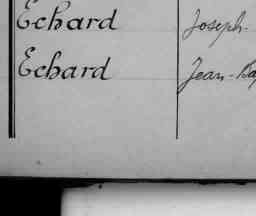 Echard Joseph.
Echard Jean-Ba